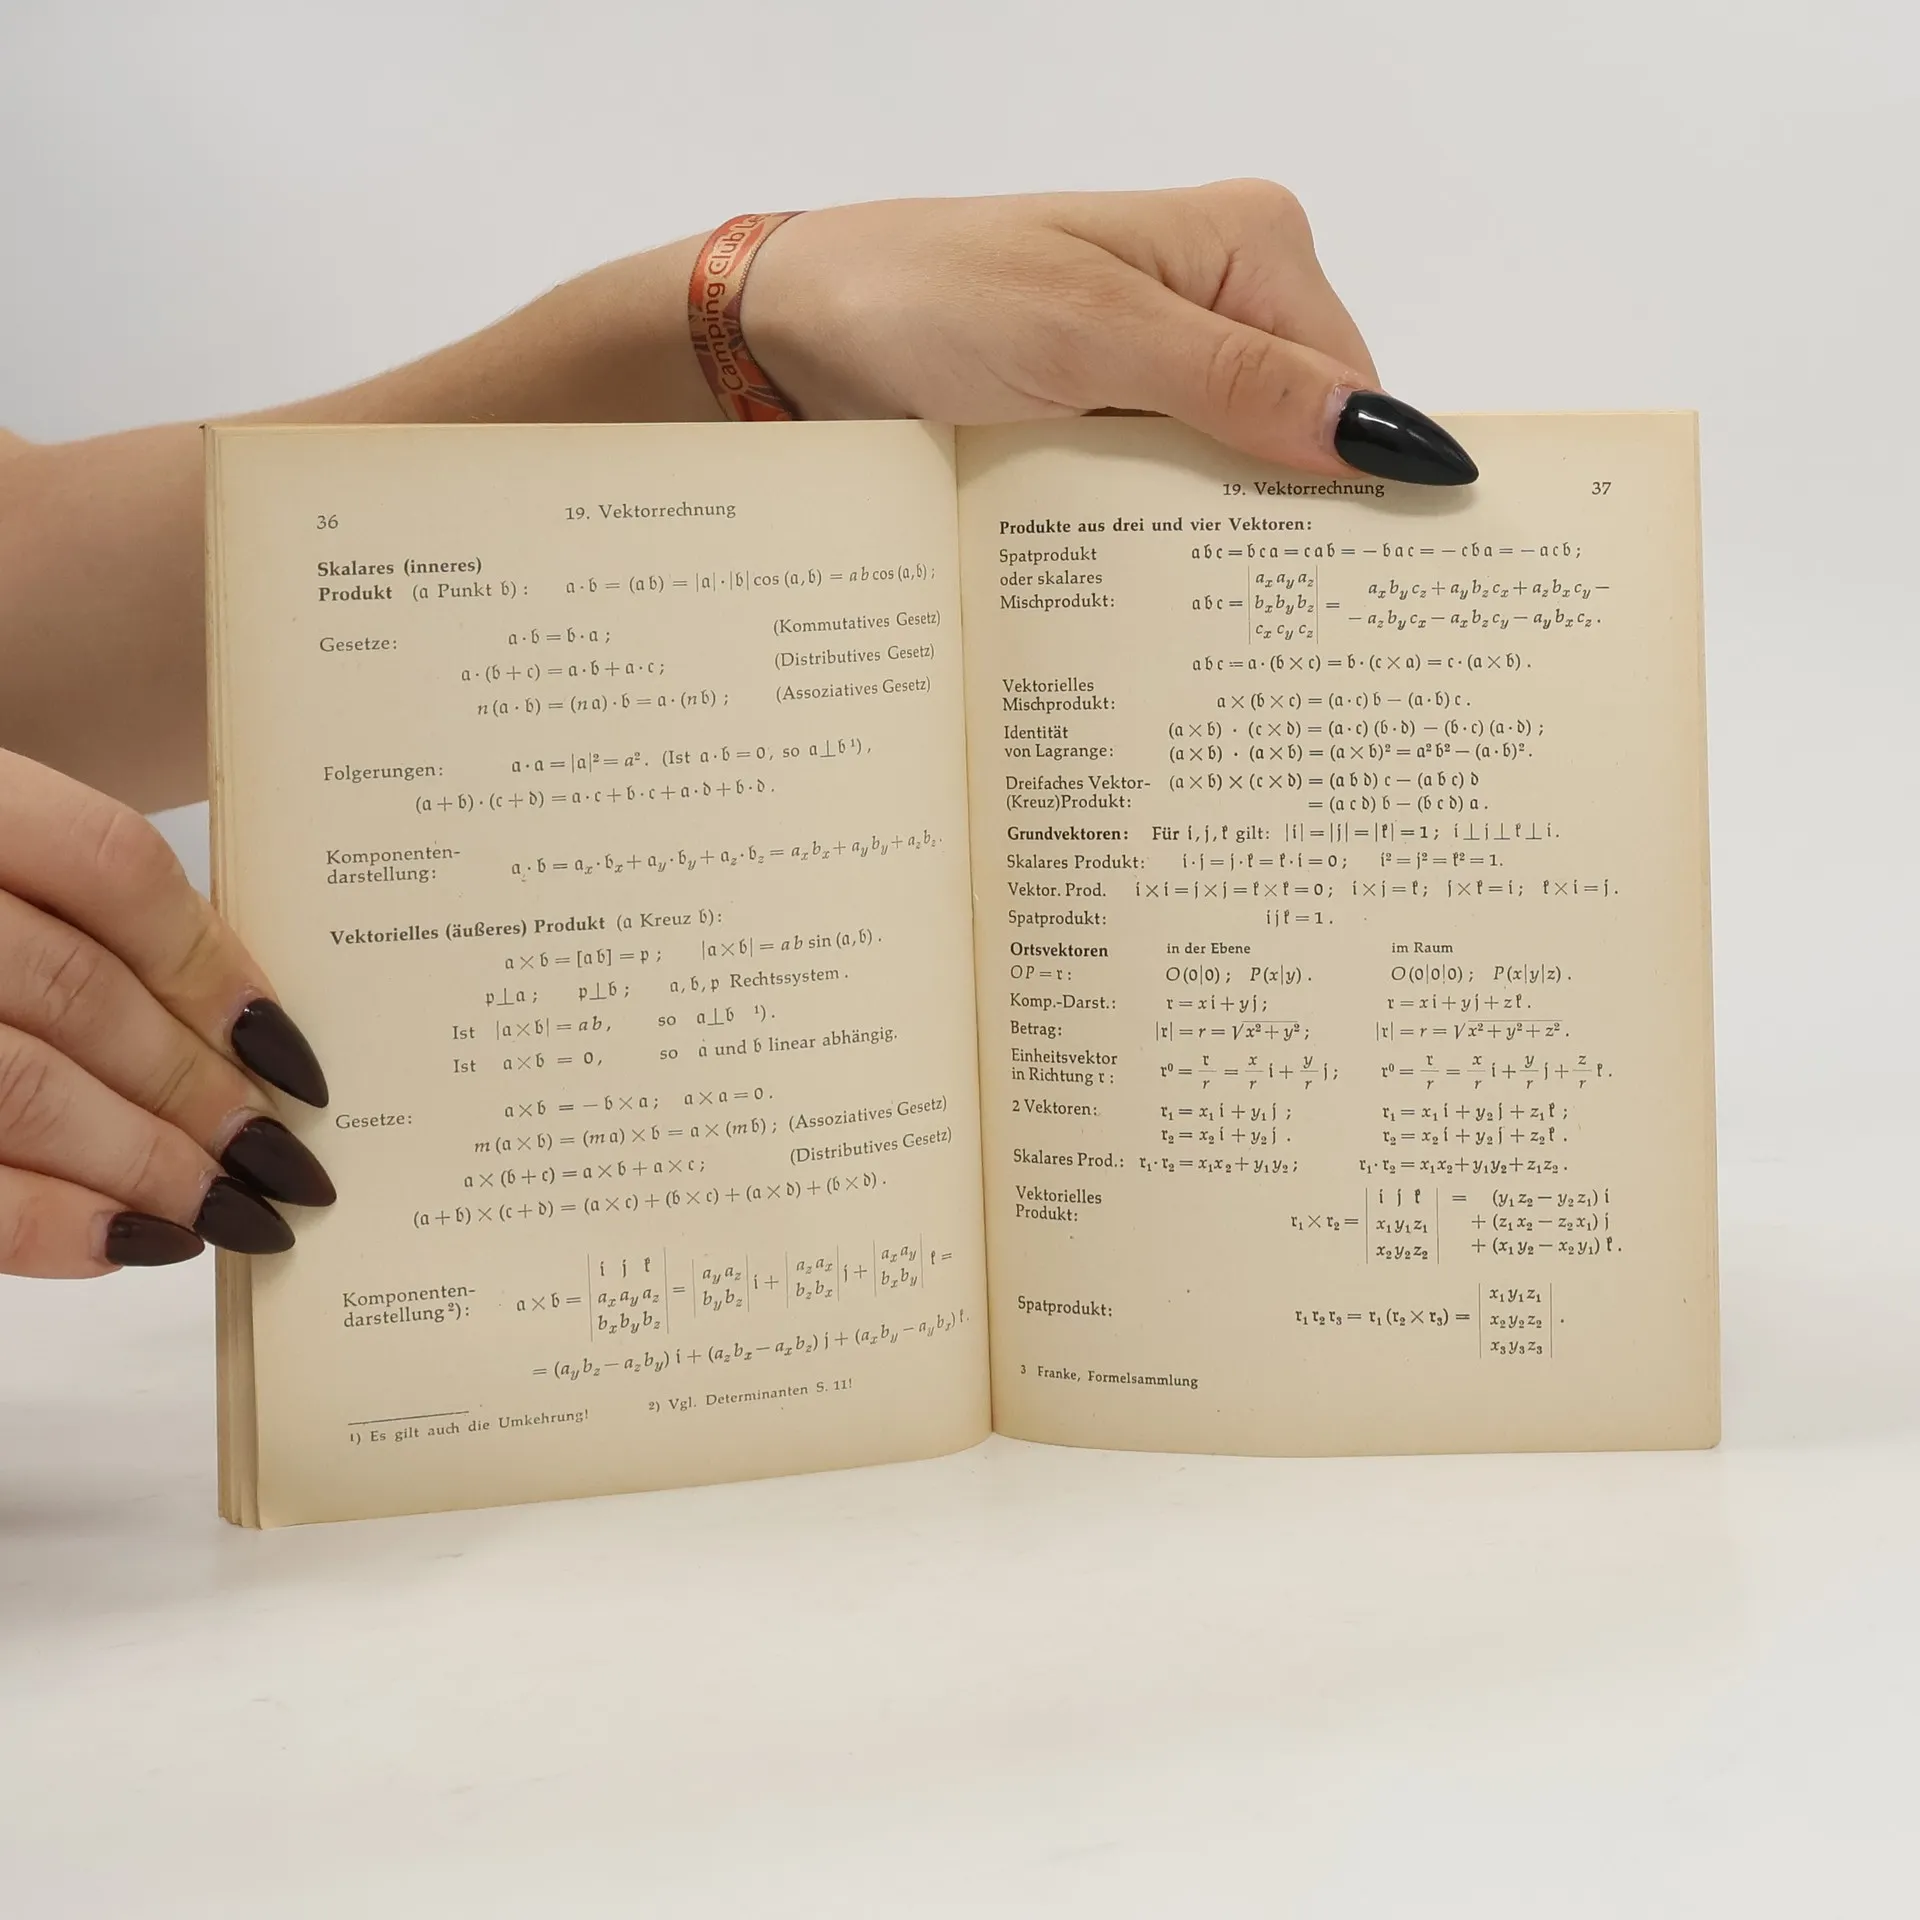 Camping Club Le
36 19. Vektorrechnung
Skalares (inneres)
Produkt (𝔞 Punkt 𝔟): 𝔞 · 𝔟 = (𝔞 𝔟) = |𝔞| · |𝔟| cos (𝔞, 𝔟) = a b cos (𝔞, 𝔟) ;
Gesetze: 𝔞 · 𝔟 = 𝔟 · 𝔞 ; (Kommutatives Gesetz)
𝔞 · (𝔟 + 𝔠) = 𝔞 · 𝔟 + 𝔞 · 𝔠 ; (Distributives Gesetz)
n (𝔞 · 𝔟) = (n 𝔞) · 𝔟 = 𝔞 · (n 𝔟) ; (Assoziatives Gesetz)
Folgerungen: 𝔞 · 𝔞 = |𝔞|² = a². (Ist 𝔞 · 𝔟 = 0, so 𝔞 ⊥ 𝔟 ¹) ,
(𝔞 + 𝔟) · (𝔠 + 𝔡) = 𝔞 · 𝔠 + 𝔟 · 𝔠 + 𝔞 · 𝔡 + 𝔟 · 𝔡 .
Komponenten-
darstellung: 𝔞 · 𝔟 = 𝔞ₓ · 𝔟ₓ + 𝔞_y · 𝔟_y + 𝔞_z · 𝔟_z = aₓ bₓ + a_y b_y + a_z b_z .
Vektorielles (äußeres) Produkt (𝔞 Kreuz 𝔟):
𝔞 × 𝔟 = [𝔞 𝔟] = 𝔭 ; |𝔞 × 𝔟| = a b sin (𝔞, 𝔟) .
𝔭 ⊥ 𝔞 ; 𝔭 ⊥ 𝔟 ; 𝔞, 𝔟, 𝔭 Rechtssystem .
Ist |𝔞 × 𝔟| = a b , so 𝔞 ⊥ 𝔟 ¹) .
Ist 𝔞 × 𝔟 = 0, so 𝔞 und 𝔟 linear abhängig.
Gesetze: 𝔞 × 𝔟 = − 𝔟 × 𝔞 ; 𝔞 × 𝔞 = 0 .
m (𝔞 × 𝔟) = (m 𝔞) × 𝔟 = 𝔞 × (m 𝔟) ; (Assoziatives Gesetz)
𝔞 × (𝔟 + 𝔠) = 𝔞 × 𝔟 + 𝔞 × 𝔠 ; (Distributives Gesetz)
(𝔞 + 𝔟) × (𝔠 + 𝔡) = (𝔞 × 𝔠) + (𝔟 × 𝔠) + (𝔞 × 𝔡) + (𝔟 × 𝔡) .
Komponenten-
darstellung ²): 𝔞 × 𝔟 = | 𝔦 𝔧 𝔨 ; aₓ a_y a_z ; bₓ b_y b_z | = | a_y a_z ; b_y b_z | 𝔦 + | a_z aₓ ; b_z bₓ | 𝔧 + | aₓ a_y ; bₓ b_y | 𝔨 =
= (a_y b_z − a_z b_y) 𝔦 + (a_z bₓ − aₓ b_z) 𝔧 + (aₓ b_y − a_y bₓ) 𝔨 .
¹) Es gilt auch die Umkehrung! ²) Vgl. Determinanten S. 11!
19. Vektorrechnung 37
Produkte aus drei und vier Vektoren:
Spatprodukt 𝔞 𝔟 𝔠 = 𝔟 𝔠 𝔞 = 𝔠 𝔞 𝔟 = − 𝔟 𝔞 𝔠 = − 𝔠 𝔟 𝔞 = − 𝔞 𝔠 𝔟 ;
oder skalares
Mischprodukt: 𝔞 𝔟 𝔠 = | aₓ a_y a_z ; bₓ b_y b_z ; cₓ c_y c_z | = aₓ b_y c_z + a_y b_z cₓ + a_z bₓ c_y −
− a_z b_y cₓ − aₓ b_z c_y − a_y bₓ c_z .
𝔞 𝔟 𝔠 = 𝔞 · (𝔟 × 𝔠) = 𝔟 · (𝔠 × 𝔞) = 𝔠 · (𝔞 × 𝔟) .
Vektorielles
Mischprodukt: 𝔞 × (𝔟 × 𝔠) = (𝔞 · 𝔠) 𝔟 − (𝔞 · 𝔟) 𝔠 .
Identität (𝔞 × 𝔟) · (𝔠 × 𝔡) = (𝔞 · 𝔠) (𝔟 · 𝔡) − (𝔟 · 𝔠) (𝔞 · 𝔡) ;
von Lagrange: (𝔞 × 𝔟) · (𝔞 × 𝔟) = (𝔞 × 𝔟)² = 𝔞² 𝔟² − (𝔞 · 𝔟)².
Dreifaches Vektor- (𝔞 × 𝔟) × (𝔠 × 𝔡) = (𝔞 𝔟 𝔡) 𝔠 − (𝔞 𝔟 𝔠) 𝔡
(Kreuz)Produkt: = (𝔞 𝔠 𝔡) 𝔟 − (𝔟 𝔠 𝔡) 𝔞 .
Grundvektoren: Für 𝔦, 𝔧, 𝔨 gilt: |𝔦| = |𝔧| = |𝔨| = 1 ; 𝔦 ⊥ 𝔧 ⊥ 𝔨 ⊥ 𝔦 .
Skalares Produkt: 𝔦 · 𝔧 = 𝔧 · 𝔨 = 𝔨 · 𝔦 = 0 ; 𝔦² = 𝔧² = 𝔨² = 1.
Vektor. Prod. 𝔦 × 𝔦 = 𝔧 × 𝔧 = 𝔨 × 𝔨 = 0 ; 𝔦 × 𝔧 = 𝔨 ; 𝔧 × 𝔨 = 𝔦 ; 𝔨 × 𝔦 = 𝔧 .
Spatprodukt: 𝔦 𝔧 𝔨 = 1 .
Ortsvektoren in der Ebene im Raum
OP = 𝔯 : O(0|0) ; P(x|y) . O(0|0|0) ; P(x|y|z) .
Komp.-Darst.: 𝔯 = x 𝔦 + y 𝔧 ; 𝔯 = x 𝔦 + y 𝔧 + z 𝔨 .
Betrag: |𝔯| = r = √(x² + y²) ; |𝔯| = r = √(x² + y² + z²) .
Einheitsvektor
in Richtung 𝔯 : 𝔯⁰ = 𝔯/r = x/r 𝔦 + y/r 𝔧 ; 𝔯⁰ = 𝔯/r = x/r 𝔦 + y/r 𝔧 + z/r 𝔨 .
2 Vektoren: 𝔯₁ = x₁ 𝔦 + y₁ 𝔧 ; 𝔯₁ = x₁ 𝔦 + y₂ 𝔧 + z₁ 𝔨 ;
𝔯₂ = x₂ 𝔦 + y₂ 𝔧 . 𝔯₂ = x₂ 𝔦 + y₂ 𝔧 + z₂ 𝔨 .
Skalares Prod.: 𝔯₁ · 𝔯₂ = x₁x₂ + y₁y₂ ; 𝔯₁ · 𝔯₂ = x₁x₂ + y₁y₂ + z₁z₂ .
Vektorielles
Produkt: 𝔯₁ × 𝔯₂ = | 𝔦 𝔧 𝔨 ; x₁ y₁ z₁ ; x₂ y₂ z₂ | = (y₁ z₂ − y₂ z₁) 𝔦
+ (z₁ x₂ − z₂ x₁) 𝔧
+ (x₁ y₂ − x₂ y₁) 𝔨 .
Spatprodukt: 𝔯₁ 𝔯₂ 𝔯₃ = 𝔯₁ (𝔯₂ × 𝔯₃) = | x₁ y₁ z₁ ; x₂ y₂ z₂ ; x₃ y₃ z₃ | .
3 Franke, Formelsammlung